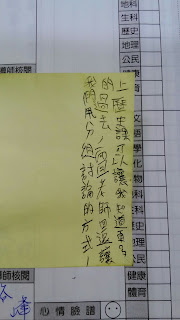 地科
生科
歷史
地理
公民
康
育
師核閱
上歷史課可以讓我知道更多
的過去,而且老師還讓
我們用分組討論的方式!
文
語
學
化
物
科
科
史
理
公民
健康
體育
師核閱
心情臉譜